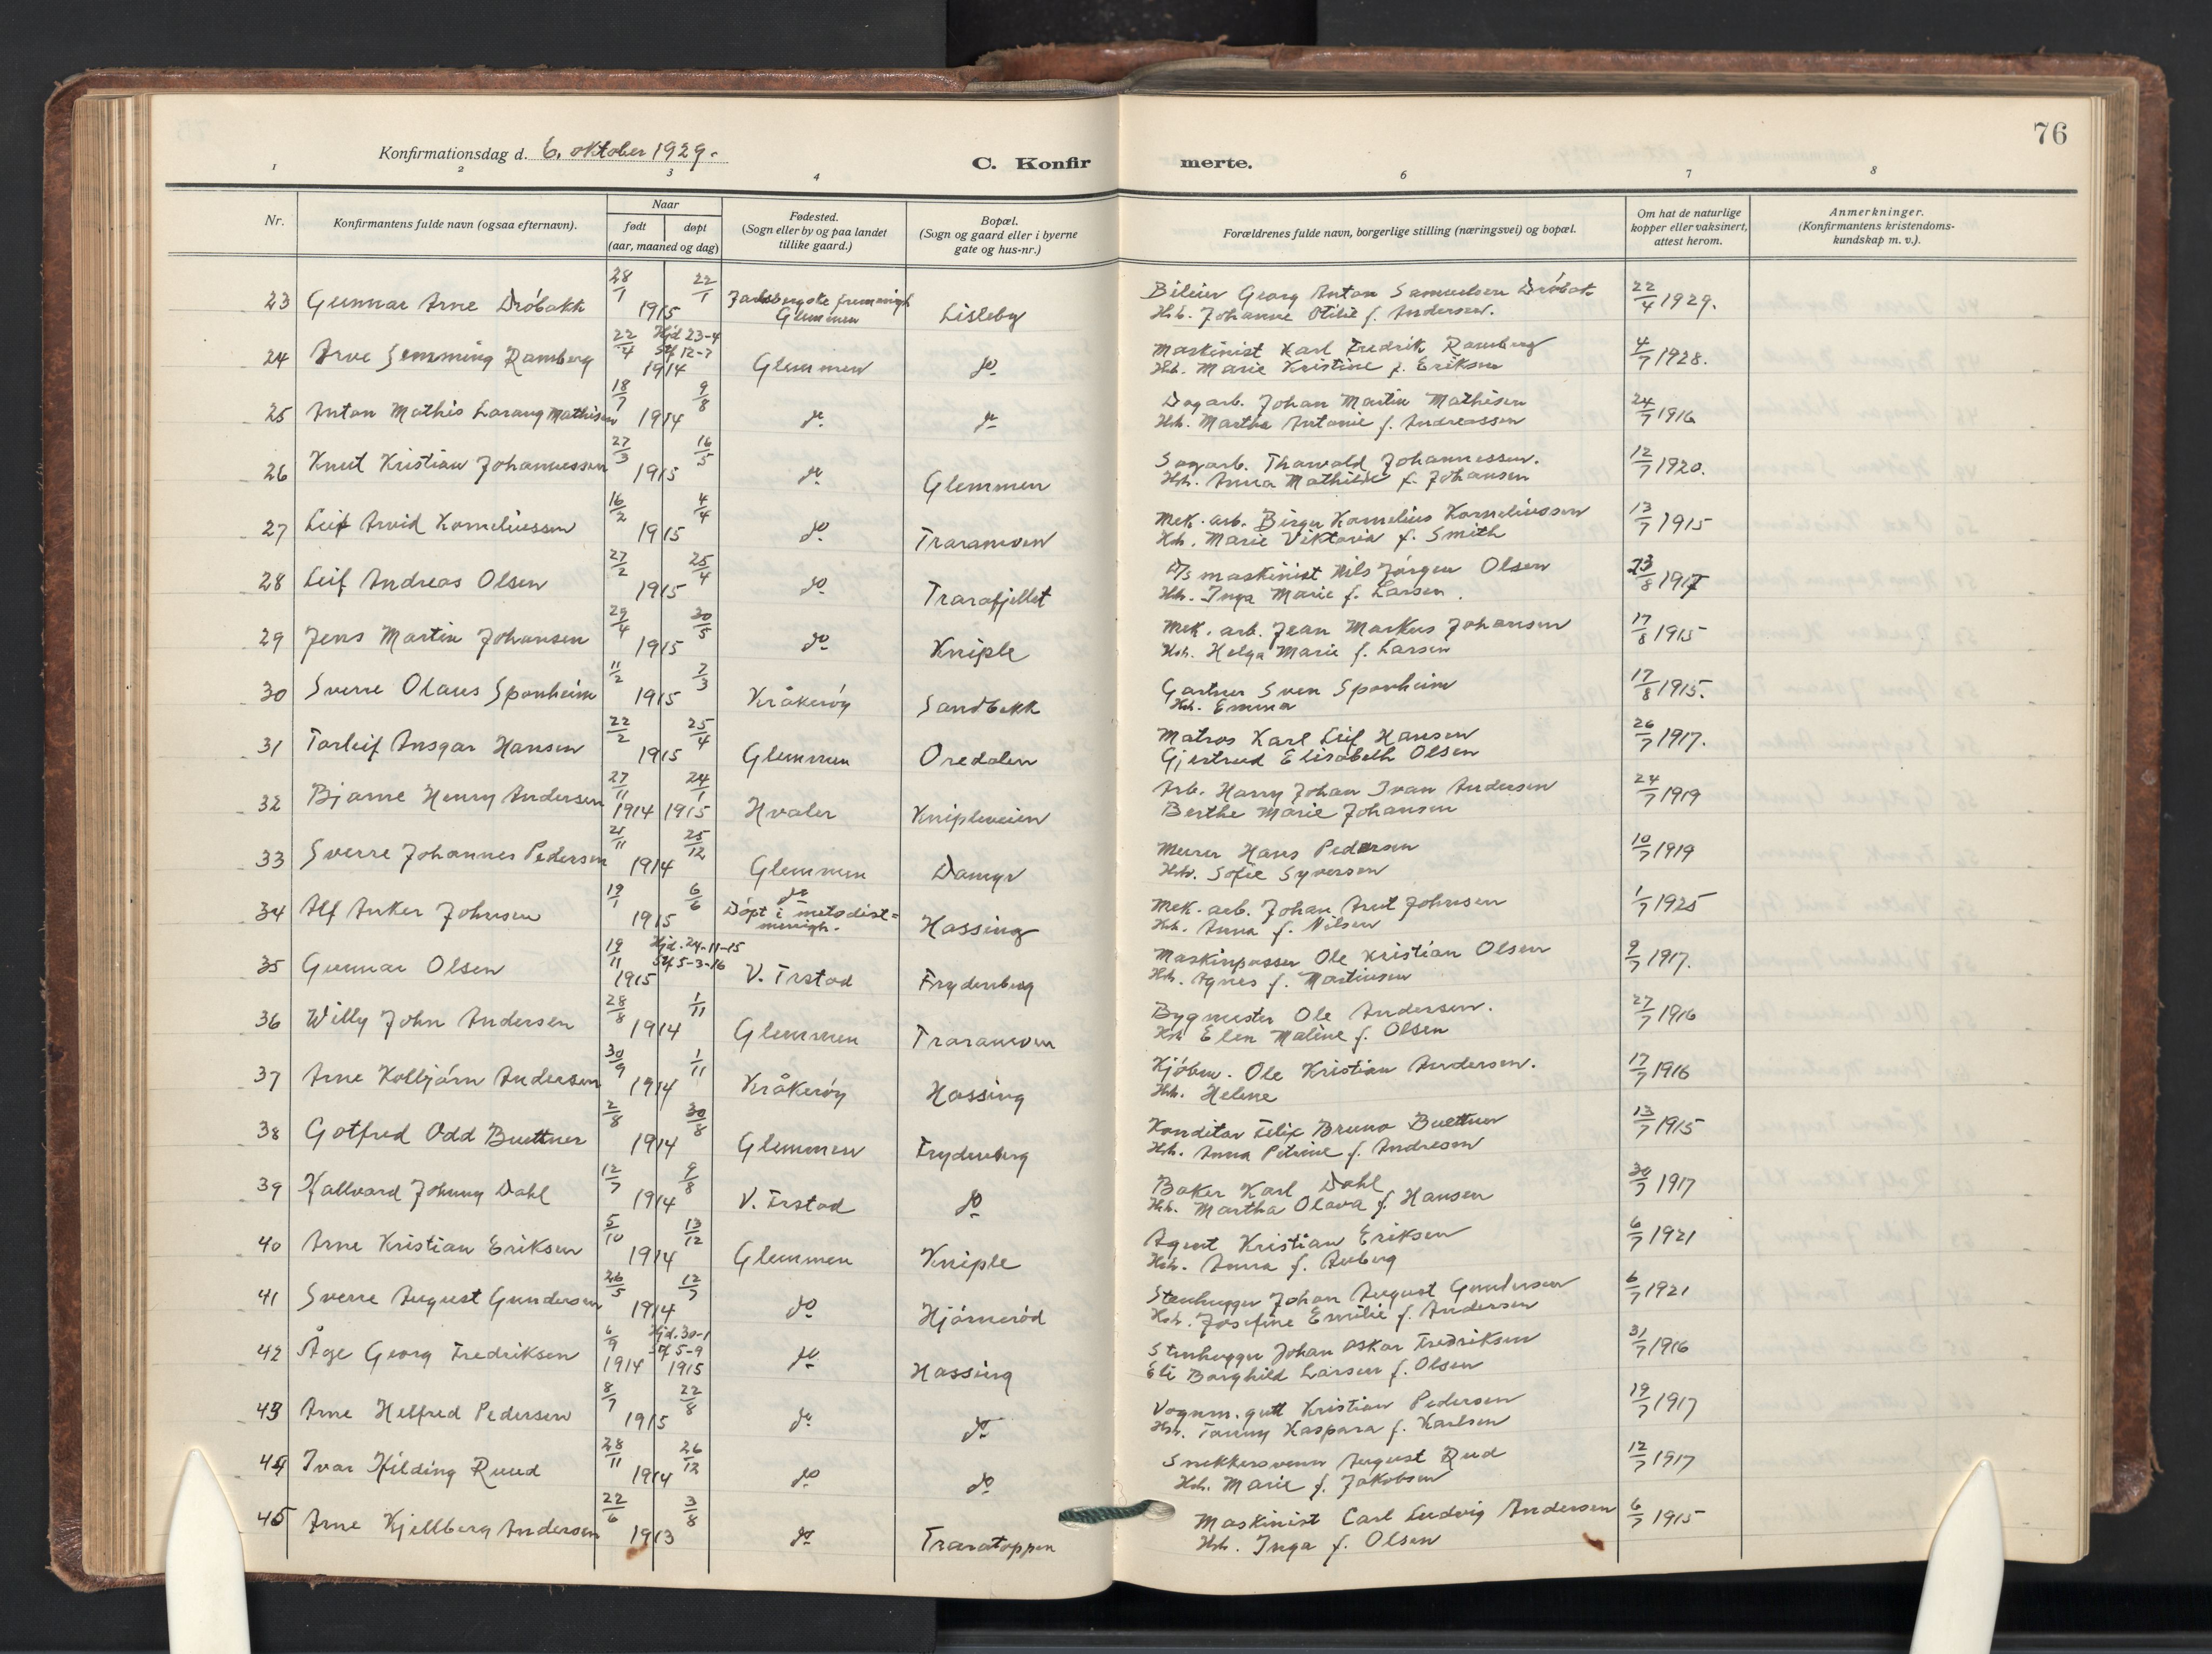 76
Konfirmationsdag d. 6. oktober 1929.
C. Konfirmerte.
1 2 3 4 6 7 8
Nr.
Konfirmantens fulde navn (ogsaa efternavn).
Naar
født døpt
(aar, maaned og dag)
Fødested.
(Sogn eller by og paa landet
tillike gaard.)
Bopæl.
(Sogn og gaard eller i byerne
gate og hus-nr.)
Forældrenes fulde navn, borgerlige stilling (næringsvei) og bopæl.
Om hat de naturlige
kopper eller vaksinert,
attest herom.
Anmerkninger.
(Konfirmantens kristendoms-
kundskap m. v.).
23 Gunnar Arne Dröbakk 28/1 22/1 1915 Glemmen Lisleby
Bileier Georg Anton Samuelsen Dröbak 22/4 1929.
Hh. Johanne Otilie f. Andersen.
24 Arve Semming Ramberg 22/4 Hjd 23-4 Stf 12-7 1914 Glemmen do
Maskinist Karl Fredrik Ramberg 4/7 1928.
Hh. Marie Kristine f. Eriksen
25 Anton Mathis Larang Mathisen 18/7 9/8 1914 do do
Dagarb. Johan Martin Mathisen 24/7 1916
Hh. Martha Antonie f. Andreassen
26 Knut Kristian Johannessen 27/3 16/5 1915 do Glemmen
Sagarb. Tharvald Johannessen. 12/7 1920.
Hh. Anna Mathilde f. Johansen
27 Leif Arvid Korneliussen 16/2 4/4 1915 do Traramoen
Mek. arb. Birger Kornelius Korneliussen 13/7 1915
Hh. Marie Viktoria f. Smith
28 Leif Andreas Olsen 27/2 25/4 1915 do Trarafjellet
D/s maskinist Nils Jörgen Olsen 23/8 1917
Hh. Inga Marie f. Larsen.
29 Jens Martin Johansen 29/4 30/5 1915 do Kniple
Mek. arb. Jean Markus Johansen 17/8 1915
Hh. Helga Marie f. Larsen
30 Sverre Olaus Sponheim 11/2 7/3 1915 Kråkeröy Sandbekk
Gartner Sven Sponheim 17/8 1915.
Hh. Emma
31 Torleif Ansgar Hansen 22/2 25/4 1915 Glemmen Oredalen
Matros Karl Leif Hansen 26/7 1917.
Gjertrud Elisabeth Olsen
32 Bjarne Henry Andersen 27/11 24/1 1914 1915 Hvaler Knipleveien
Arb. Harry Johan Ivan Andersen 24/7 1919
Berthe Marie Johansen
33 Sverre Johannes Pedersen 21/11 25/12 1914 Glemmen Damyr
Murer Hans Pedersen 10/7 1919
Hh. Sofie Syversen
34 Alf Anker Johnsen 19/1 6/6 1915 do Döpt i metodist=menigh. Hassing
Mek. arb. Johan Arnt Johnsen 1/7 1925
Hh. Anna f. Nilsen
35 Gunnar Olsen 19/11 Hjd. 24-11-15 Stf 5-3-16 1915 V. Frstad Frydenberg
Maskinpasser Ole Kristian Olsen 9/7 1917.
Hh. Agnes f. Martinsen
36 Willy John Andersen 28/8 1/11 1914 Glemmen Traramoen
Bygmester Ole Andersen. 27/7 1916
Hh Elen Maline f. Olsen
37 Arne Kolbjörn Andersen 30/9 1/11 1914 Kråkeröy Hassing
Kjöbm. Ole Kristian Andersen. 17/7 1916
Hh. Helene
38 Gotfred Odd Buettner 2/8 30/8 1914 Glemmen Frydenberg
Konditor Felix Bruno Buettner 13/7 1915
Hh. Anna Petrine f. Andresen
39 Hallvard Johnny Dahl 12/7 9/8 1914 V. Frstad do
Baker Karl Dahl 30/7 1917
Hh. Martha Olava f. Hansen
40 Arne Kristian Eriksen 5/10 13/12 1914 Glemmen Kniple
Agent Kristian Eriksen 6/7 1921
Hh. Anna f. Auberg
41 Sverre August Gundersen 26/5 12/7 1914 do Hjörneröd
Stenhugger Johan August Gundersen 6/7 1921
Hh. Josefine Emilie f. Andersen
42 Åge Georg Fredriksen 6/9 Hjd. 30-1 Stf 5-9 1914 1915 do Hassing
Stenhugger Johan Oskar Fredriksen 31/7 1916
Eli Borghild Larsen f. Olsen
43 Arne Helfred Pedersen 8/7 22/8 1915 do do
Vognm. gutt Kristian Pedersen 19/7 1917
Hh. Fanny Kaspara f. Karlsen
44 Ivar Hilding Ruud 28/11 26/12 1914 do do
Snekkersvenn August Rud 12/7 1917
Hh. Marie f. Jakobsen
45 Arne Kjellberg Andersen 22/6 3/8 1913 do Traratoppen
Maskinist Carl Ludvig Andersen 6/7 1915
Hh. Inga f. Olsen